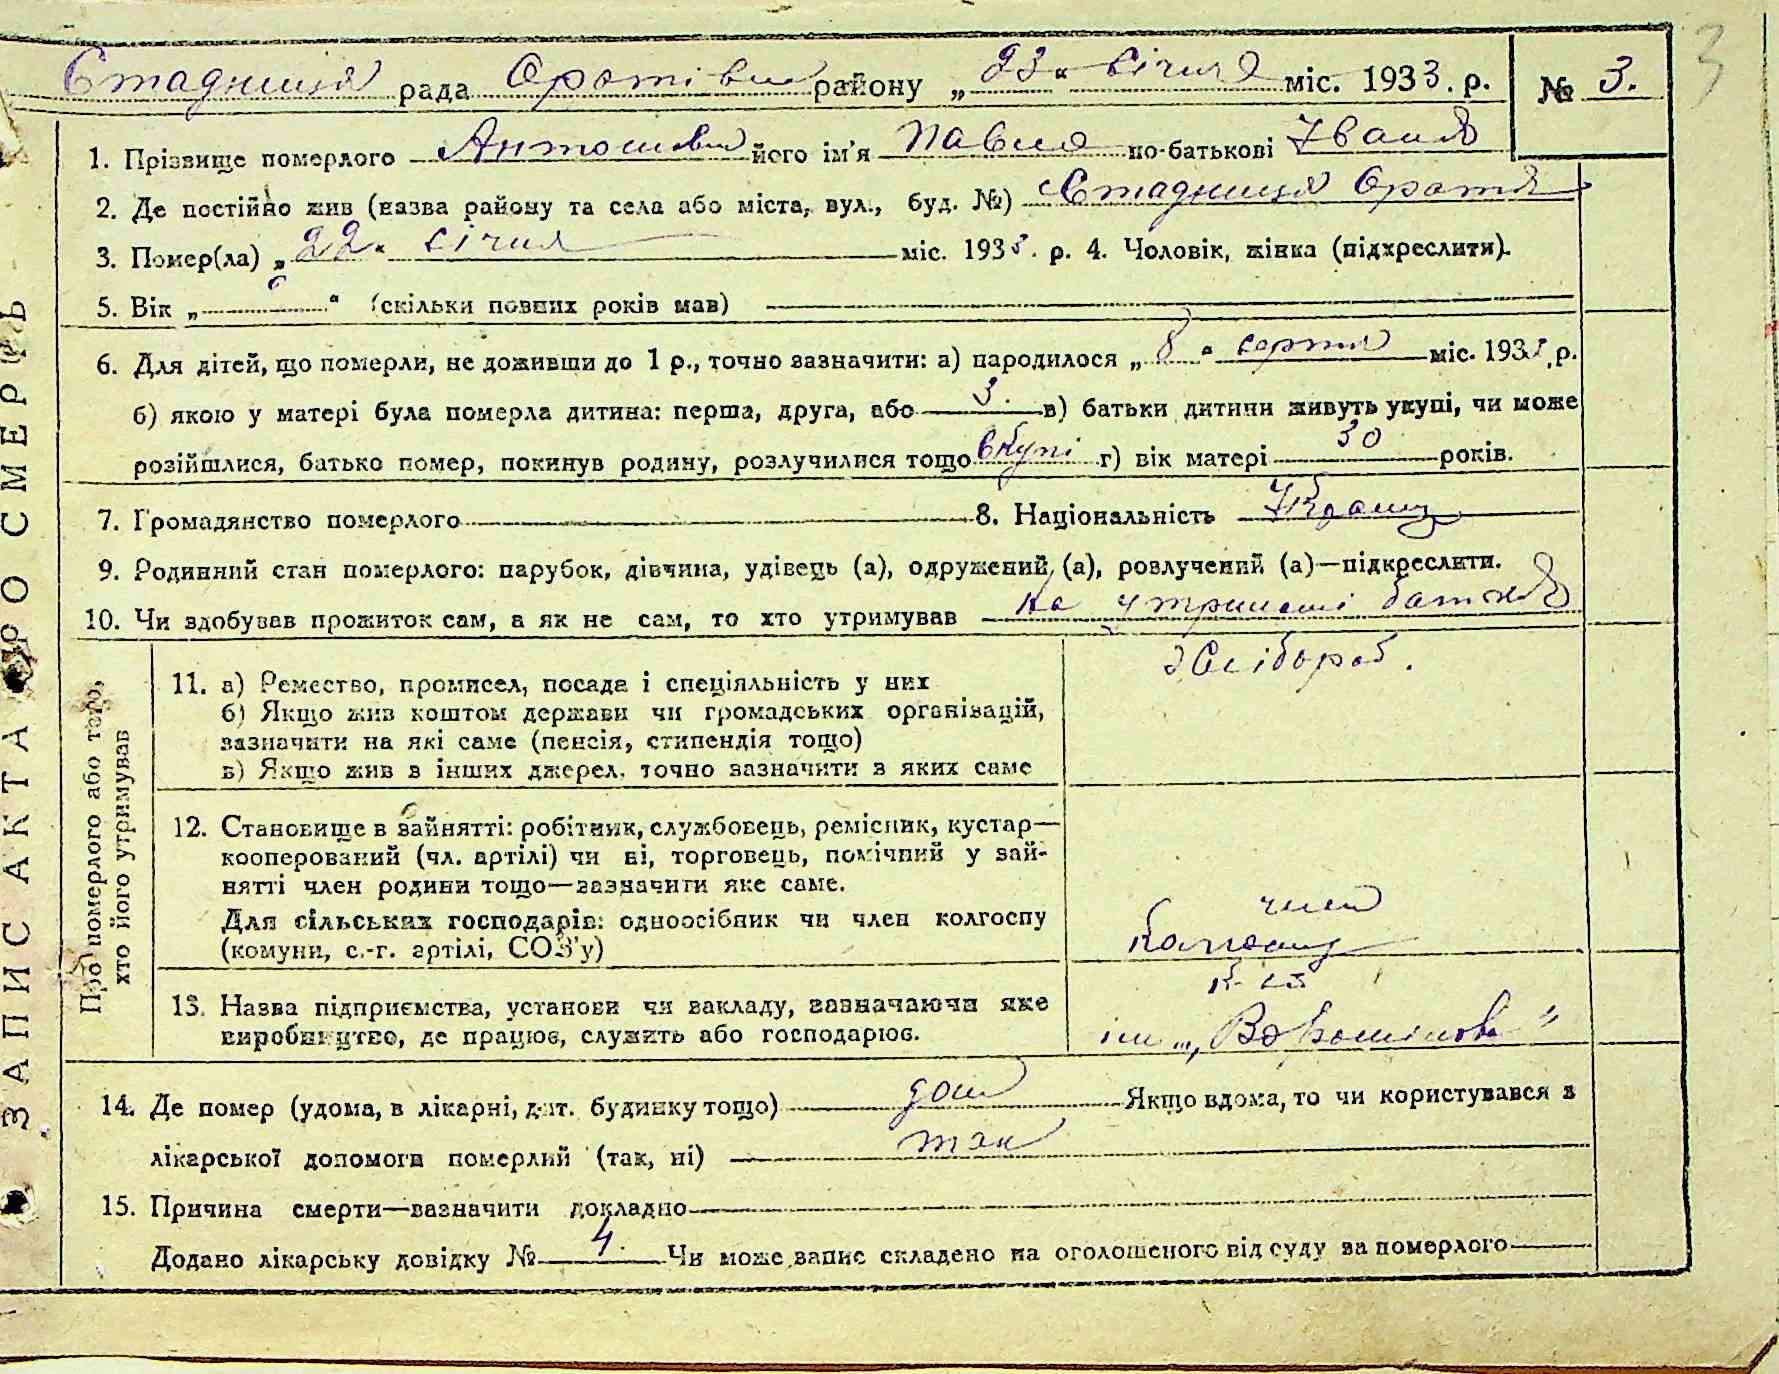 Стадниця рада Оратівськ району „23“ січня міс. 1933. р. № 3. 3
1. Прізвище померлого його ім'я по-батькові Іван
2. Де постійно жив (назва району та села або міста, вул., буд. №) Стадниця Орат
3. Помер(ла) „22“ січня міс. 1933. р. 4. Чоловік, жінка (підхреслити).
5. Вік „ “ (скільки повних років мав)
6. Для дітей, що померли, не доживши до 1 р., точно зазначити: а) народилося „8“ серпня міс. 193 .р.
б) якою у матері була померла дитина: перша, друга, або 3. в) батьки дитини живуть укупі, чи може
розійшлися, батько помер, покинув родину, розлучилися тощо вкупі г) вік матері 30 років.
7. Громадянство померлого 8. Національність Украин
9. Родинний стан померлого: парубок, дівчина, удівець (а), одружений (а), розлучений (а)—підкреслити.
10. Чи здобував прожиток сам, а як не сам, то хто утримував на утримані батька
ЗАПИС АКТА ПРО СМЕРТЬ
Про померлого або того,
хто його утримував
11. а) Ремество, промисел, посада і спеціяльність у них
б) Якщо жив коштом держави чи громадських організацій,
зазначити на які саме (пенсія, стипендія тощо)
в) Якщо жив з інших джерел, точно зазначити з яких саме
Хлібороб.
12. Становище в зайнятті: робітник, службовець, ремісник, кустар—
кооперований (чл. артілі) чи ні, торговець, помічний у зай-
нятті член родини тощо—зазначити яке саме.
Для сільських господарів: одноосібник чи член колгоспу
(комуни, с.-г. артілі, СОЗ'у)
член
колгоспу
13. Назва підприємства, установи чи закладу, зазначаючи яке
виробництво, де працює, служить або господарює.
ім „Ворошилова“
14. Де помер (удома, в лікарні, дит. будинку тощо) дома Якщо вдома, то чи користувався з
лікарської допомоги померлий (так, ні) так
15. Причина смерти—зазначити докладно
Додано лікарську довідку № 4. Чи може запис складено на оголошеного від суду за померлого